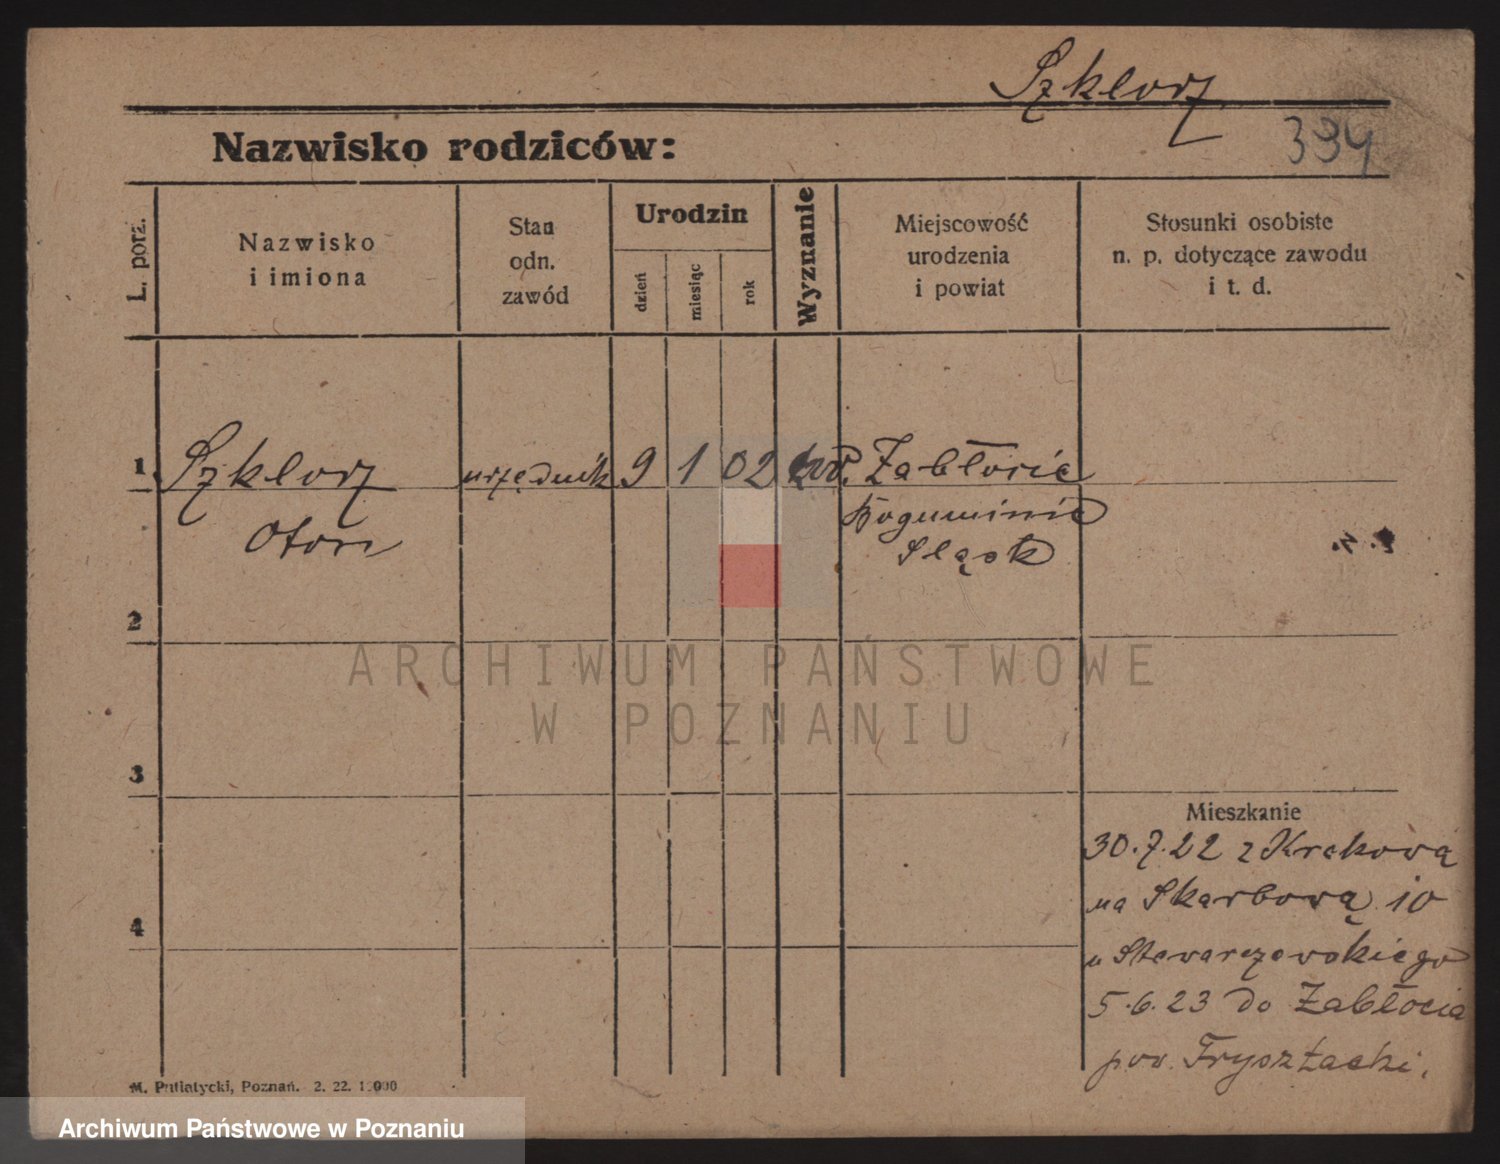 Szklorz
Nazwisko rodziców:
394
L. porz.
Nazwisko
i imiona
Stan
odn.
zawód
Urodzin
dzień
miesiąc
rok
Wyznanie
Miejscowość
urodzenia
i powiat
Stosunki osobiste
n. p. dotyczące zawodu
i t. d.
1 Szklorz urzędnik 9 1 02 Zabłocie
Oton Boguminie
Śląsk
2
3
4
Mieszkanie
30.7.22 z Krakowa
na Skarbową 10
u
5.6.23 do Zabłocia
pow. Frysztacki.
M. Putiatycki, Poznań. 2. 22. 1.000
ARCHIWUM PAŃSTWOWE
W POZNANIU
Archiwum Państwowe w Poznaniu